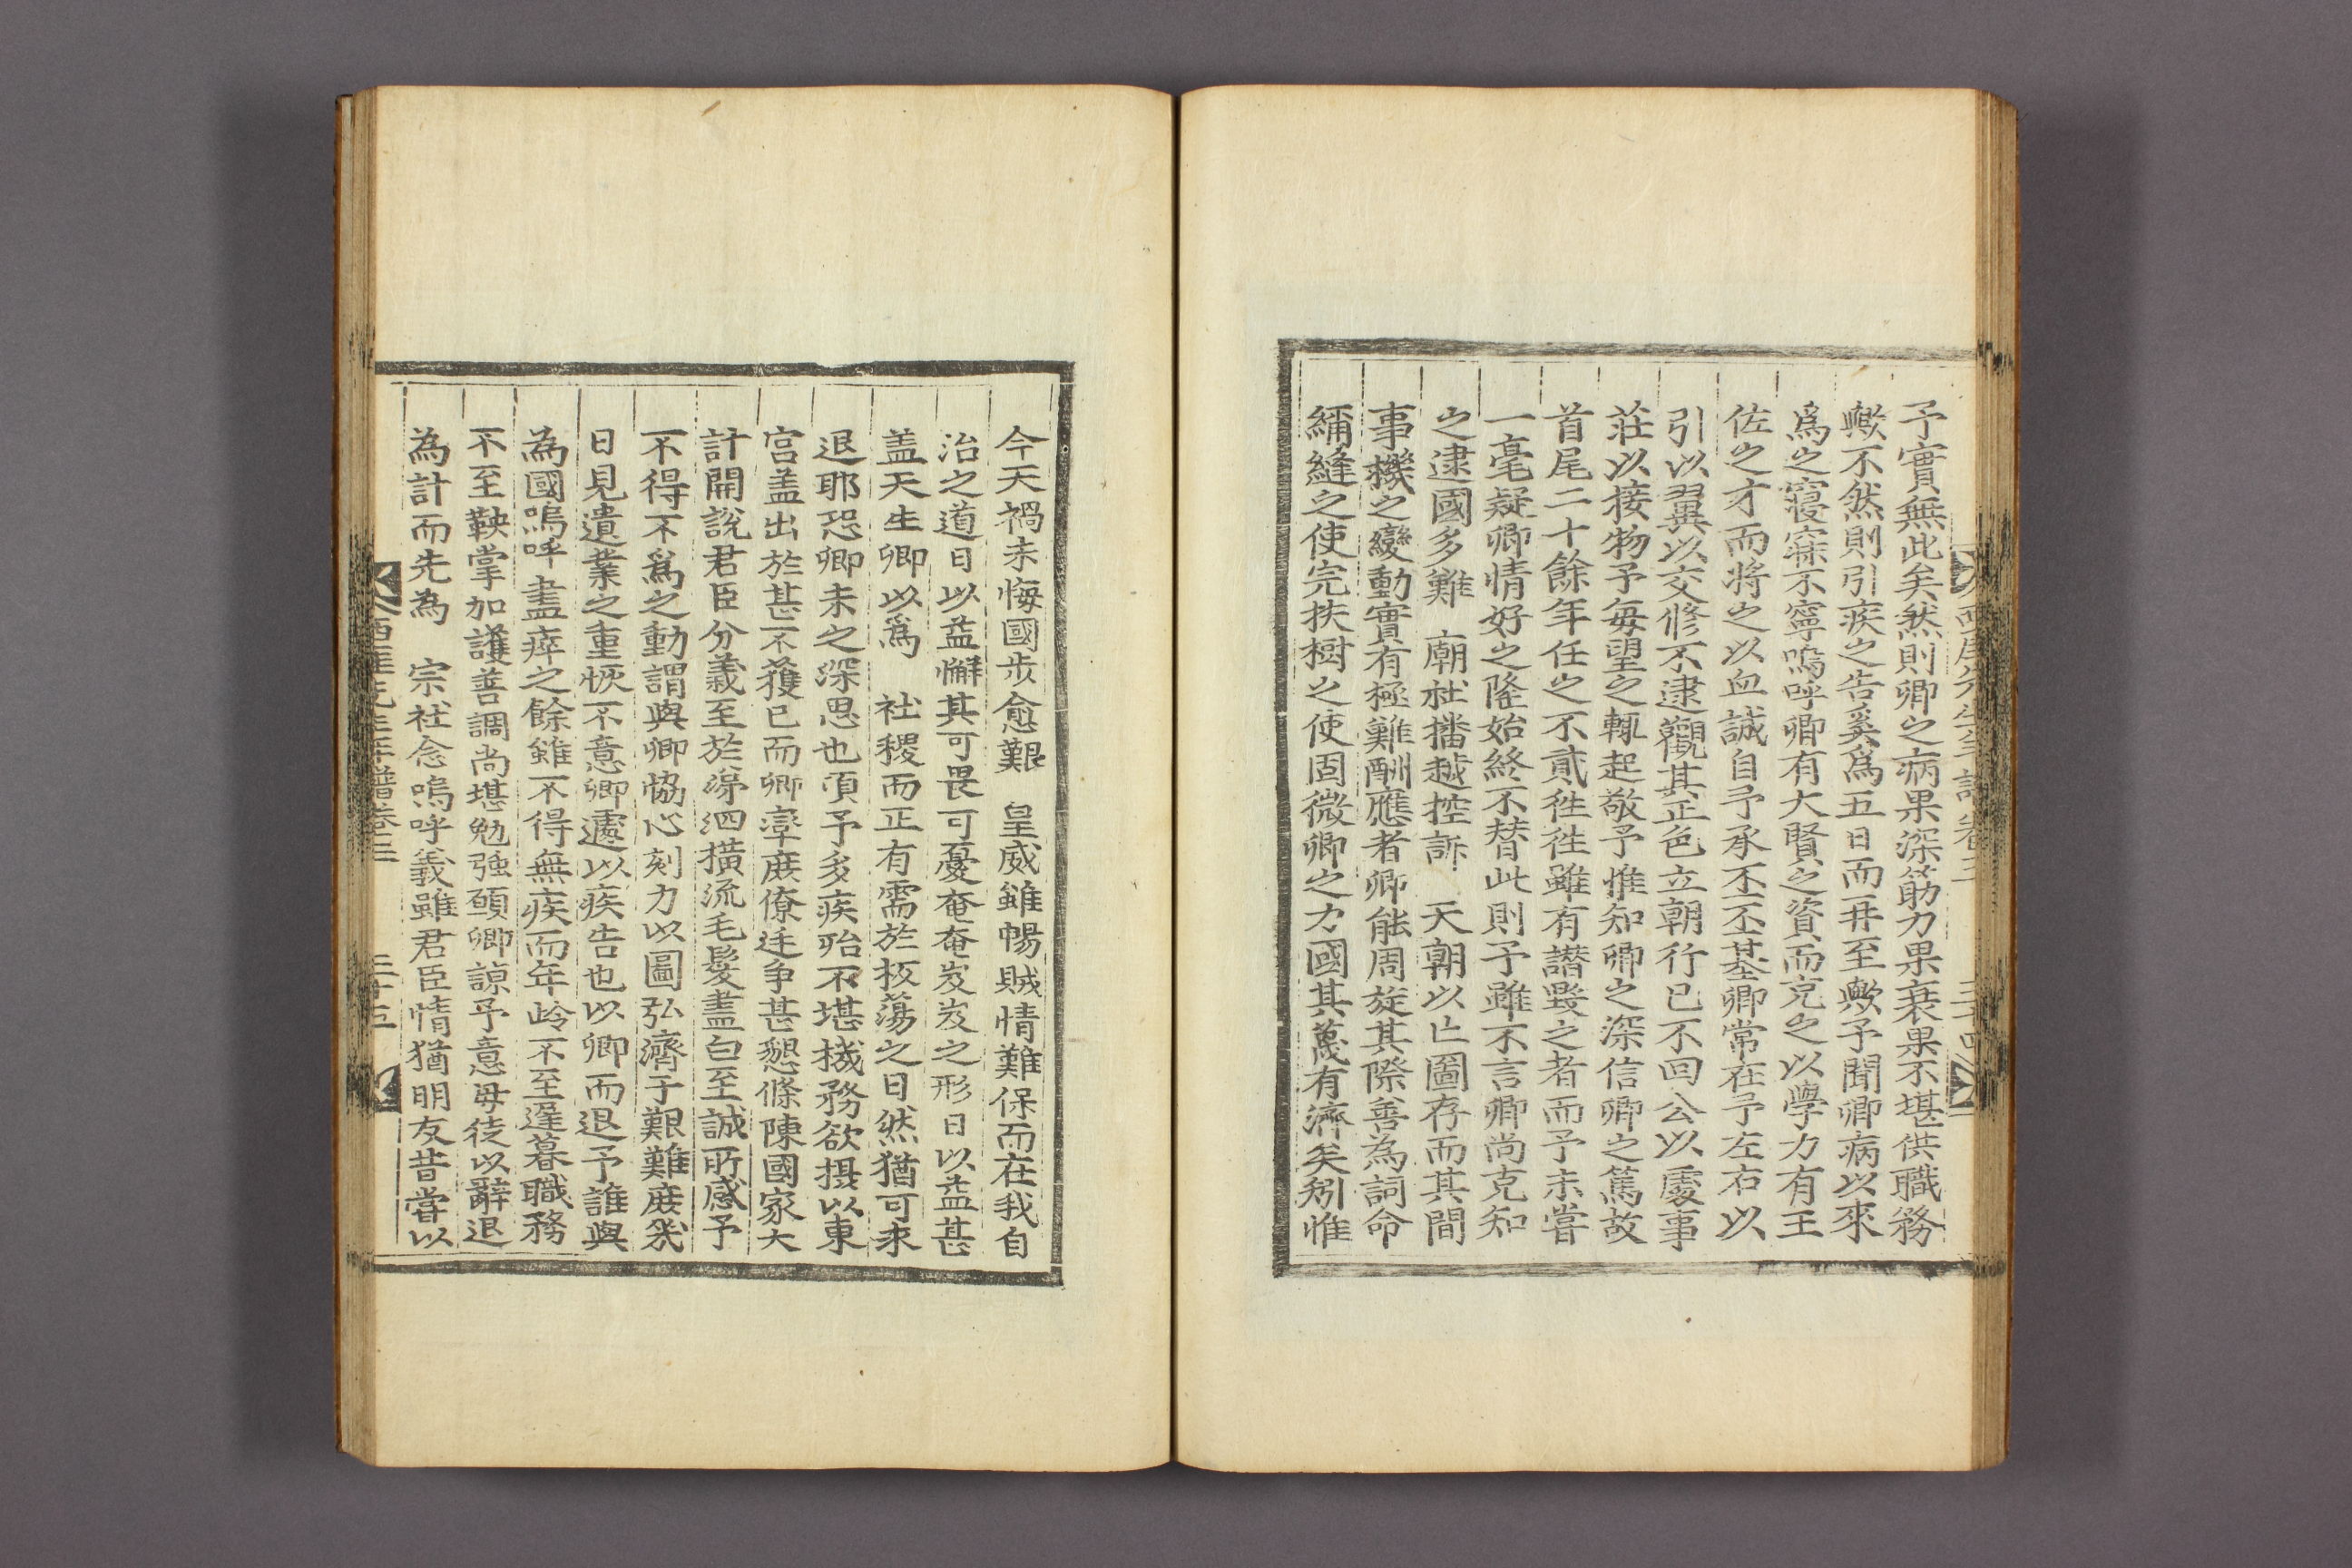 予實無此矣然則卿之病果深筋力果衰果不堪供職務
歟不然則引疾之告奚爲五日而再至歟予聞卿病以來
爲之寢寐不寧嗚呼卿有大賢之資而克之以學力有王
佐之才而將之以血誠自予承丕丕基卿常在予左右以
引以翼以交修不逮觀其正色立朝行已不回公以處事
莊以接物予每望之輒起敬予惟知卿之深信卿之篤故
首尾二十餘年任之不貳徃徃雖有譖毀之者而予未嘗
一毫疑卿情好之隆始終不替此則予雖不言卿尚克知
之逮國多難 廟社播越控訴 天朝以亡圖存而其間
事機之變動實有極難酬應者卿能周旋其際善為詞命
彌縫之使完扶樹之使固微卿之力國其蔑有濟矣矧惟
西厓先生年譜卷三 三十四
今天禍未悔國步愈艱 皇威雖暢賊情難保而在我自
治之道日以益懈其可畏可憂奄奄岌岌之形日以益甚
盖天生卿以爲 社稷而正有需於板蕩之日然猶可求
退耶恐卿未之深思也頃予多疾殆不堪機務欲摄以東
宮盖出於甚不獲已而卿率庶僚廷争甚懇條陳國家大
計開說君臣分義至於涕泗橫流毛髮盡白至誠所感予
不得不爲之動謂與卿恊心刻力以圖弘濟于艱難庶幾
日見遺業之重恢不意卿遽以疾告也以卿而退予誰與
為國嗚呼盡瘁之餘雖不得無疾而年岭不至遲暮職務
不至鞅掌加護善調尚堪勉强頤卿諒予意毋徒以辭退
為計而先為 宗社念嗚呼義雖君臣情猶明友昔嘗以
西厓先生年譜卷三 三十五